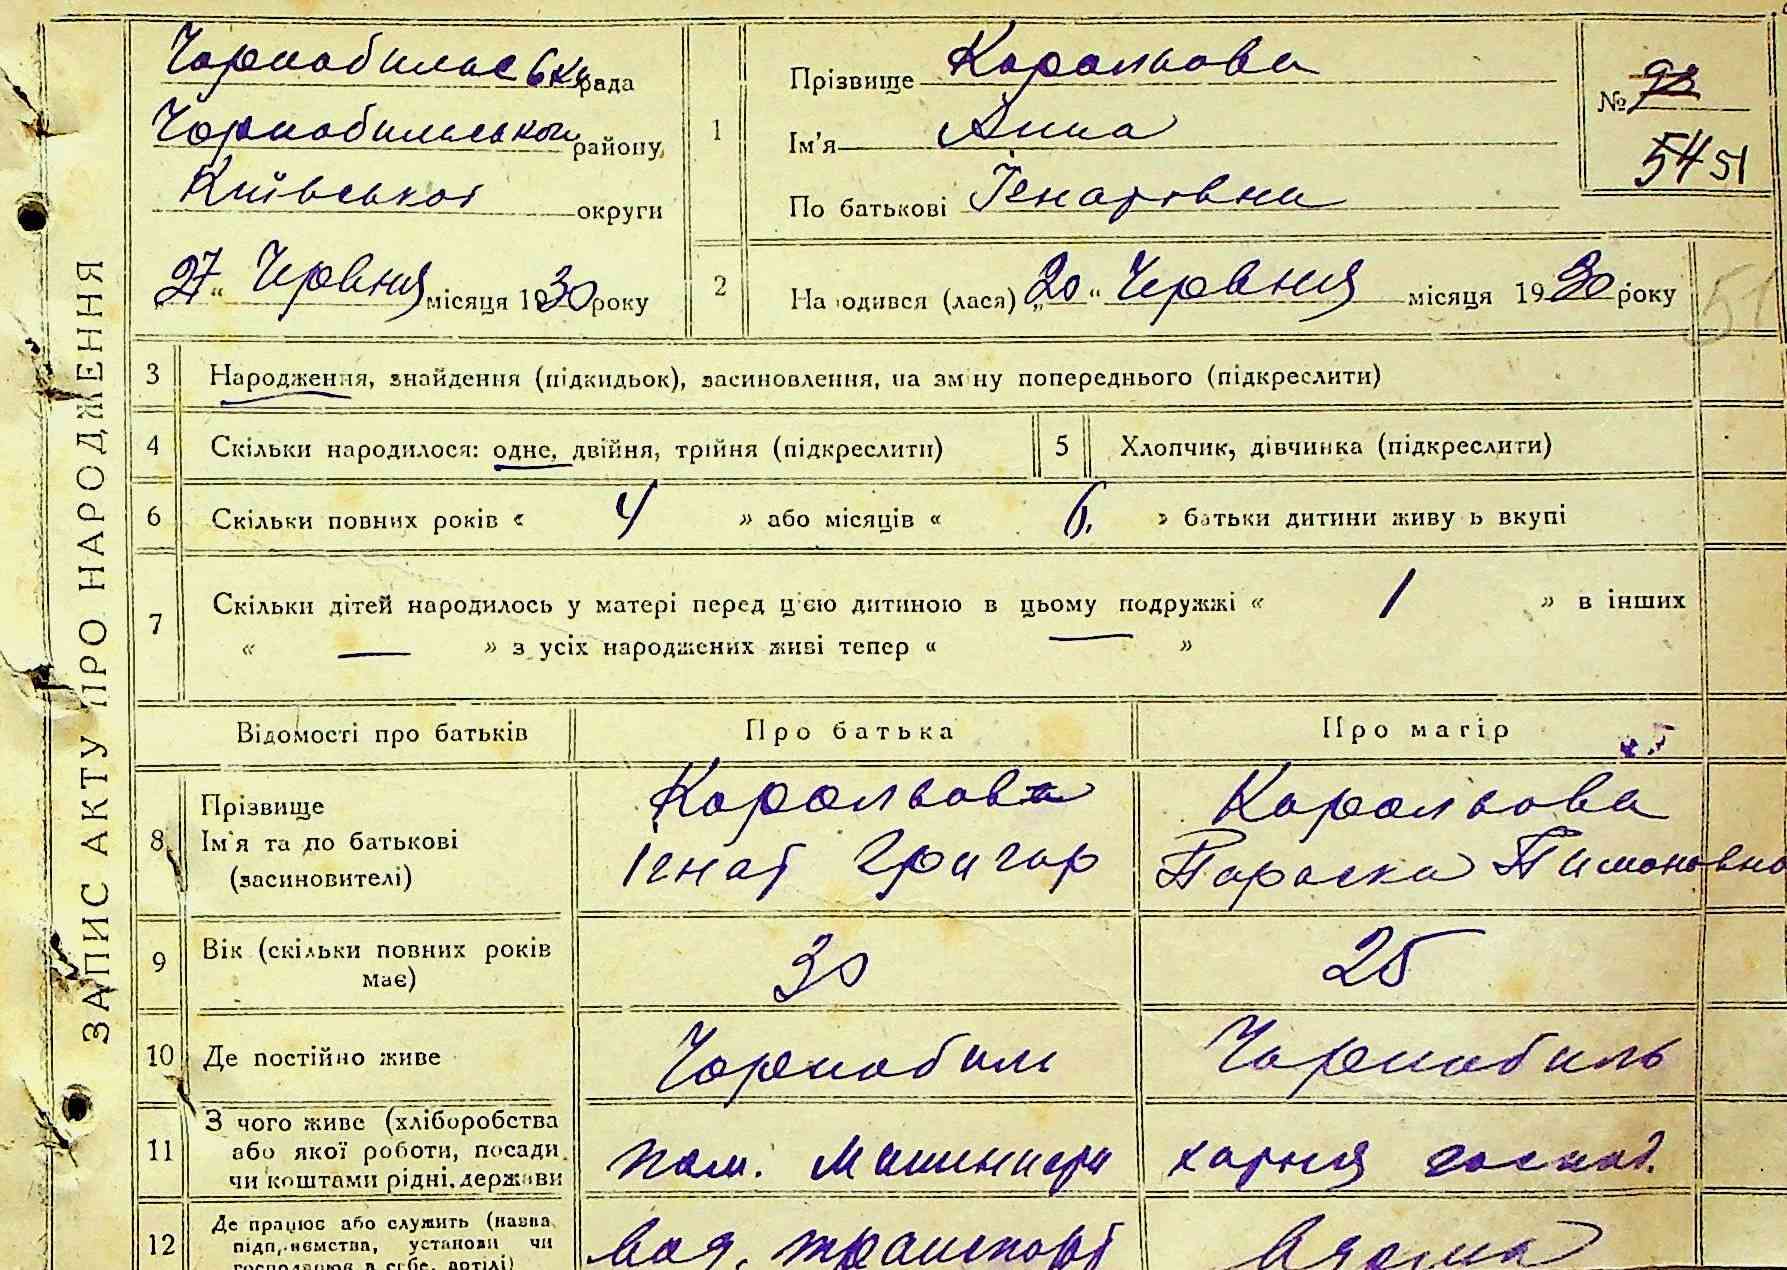 ЗАПИС АКТУ ПРО НАРОДЖЕННЯ
Чорнобильська рада
Чорнобильського району
Київської округи
„27“ Червня місяця 1930 року
1
Прізвище Корольова
Ім'я Анна
По батькові Ігнатовна
№ 93
54 51
2
На одився (лася) „20“ Червня місяця 1930 року
51
3 Народження, знайдення (підкидьок), засиновлення, на зміну попереднього (підкреслити)
4 Скільки народилося: одне, двійня, трійня (підкреслити)
5 Хлопчик, дівчинка (підкреслити)
6 Скільки повних років « 4 » або місяців « 6. » батьки дитини живу ь вкупі
7 Скільки дітей народилось у матері перед цією дитиною в цьому подружжі « 1 » в інших
« — » з усіх народжених живі тепер « — »
Відомості про батьків Про батька Про матір
8
Прізвище
Ім'я та по батькові
(засиновителі)
Корольов
Ігнат Григор
Корольова
Параска Пимоновна
9
Вік (скільки повних років
має)
30
25
10 Де постійно живе Чорнобиль Чорнобиль
11
З чого живе (хліборобства
або якої роботи, посади
чи коштами рідні, держави
пом. Машиниста
хатня господ.
12
Де працює або служить (назва
підприємства, установи чи
господарює в себе, артілі)
вод. транспорт
вдома